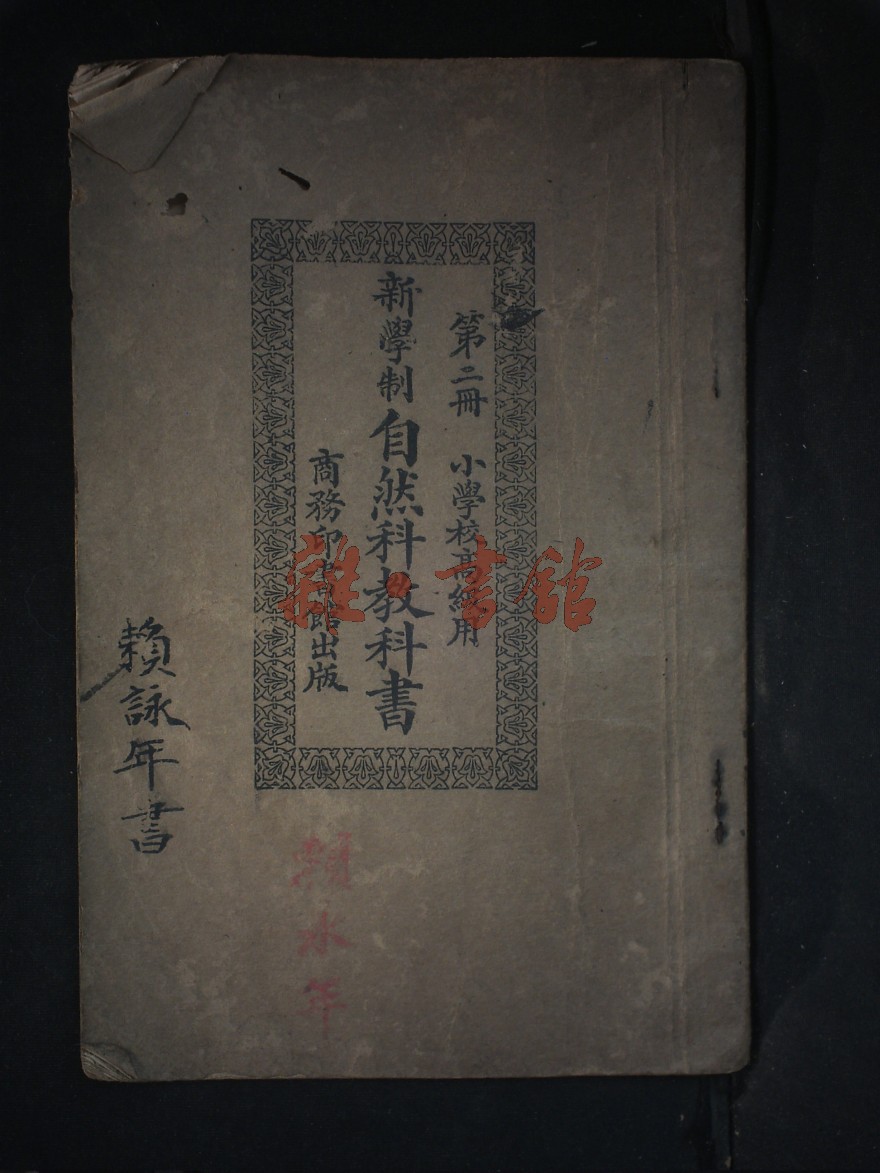 第二冊 小學校高級用
新學制自然科教科書
商務印書館出版
賴詠年書
賴永年
雜·書館